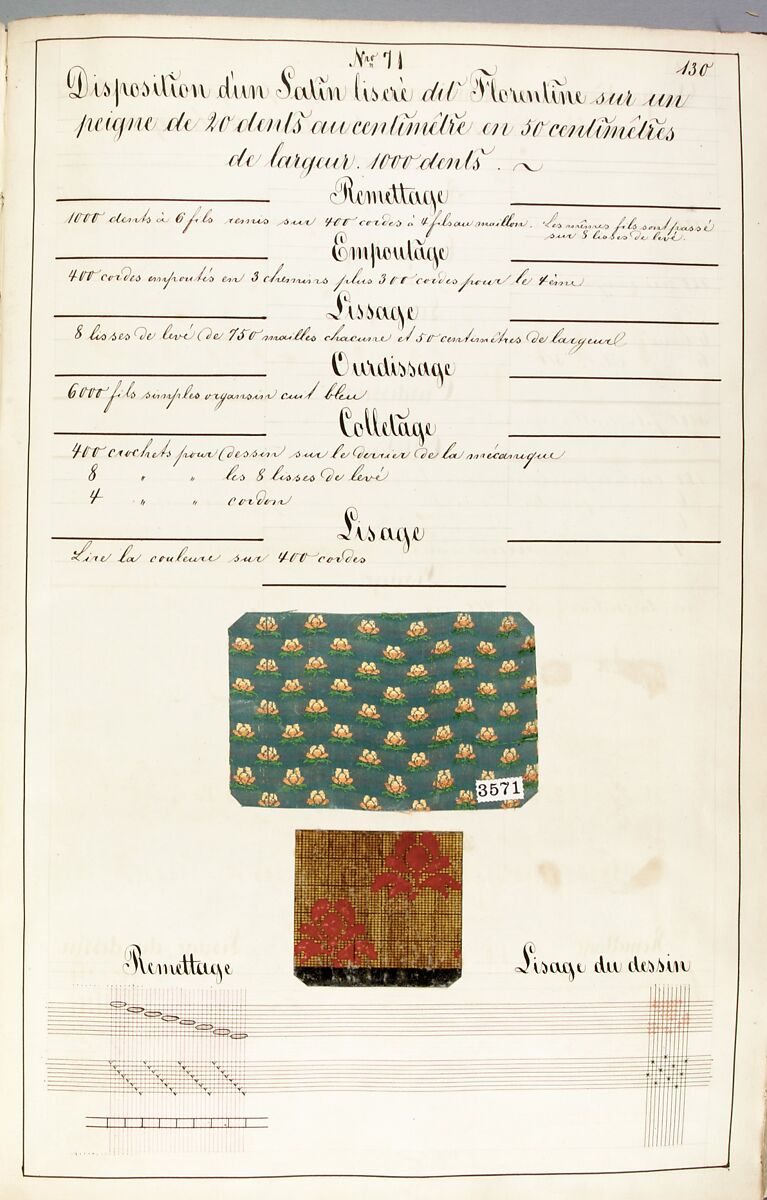 Nro 71
130
Disposition d'un Satin liseré dit Florentine sur un
peigne de 20 dents au centimêtre en 50 centimêtres
de largeur. 1000 dents.
Remettage
1000 dents à 6 fils remis sur 400 cordes à 4 fils au maillon. Les mêmes fils sont passé
sur 8 lisses de levé.
Empoutage
400 cordes empoutés en 3 chemins plus 300 cordes pour le 4ème
Lissage
8 lisses de levé de 750 mailles chacune et 50 centimêtres de largeur
Ourdissage
6000 fils simples organsin cuit bleu
Colletage
400 crochets pour dessin sur le derrier de la mécanique
8 " " les 8 lisses de levé
4 " " cordon
Lisage
Lire la couleure sur 400 cordes
3571
Remettage
Lisage du dessin